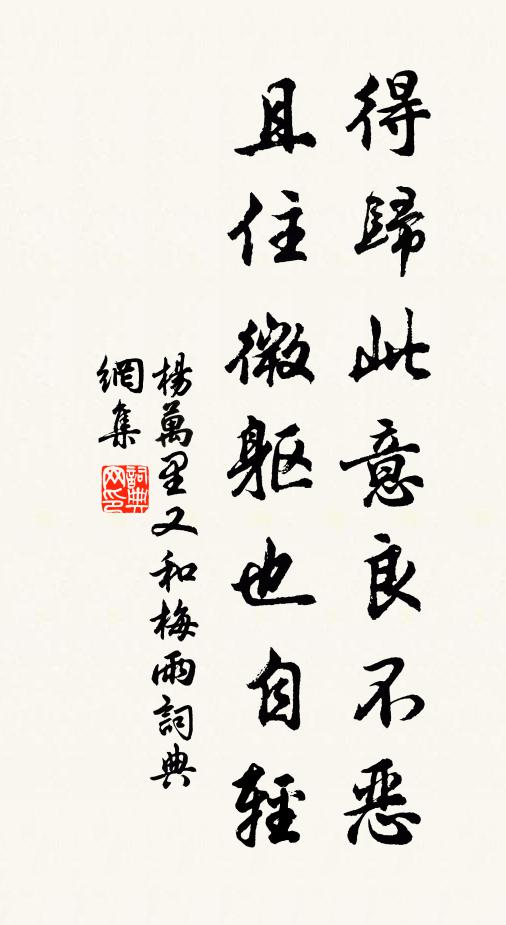 得歸此意良不惡
且住微軀也自輕
楊萬里又和梅雨詞典
網集
詞典
网印